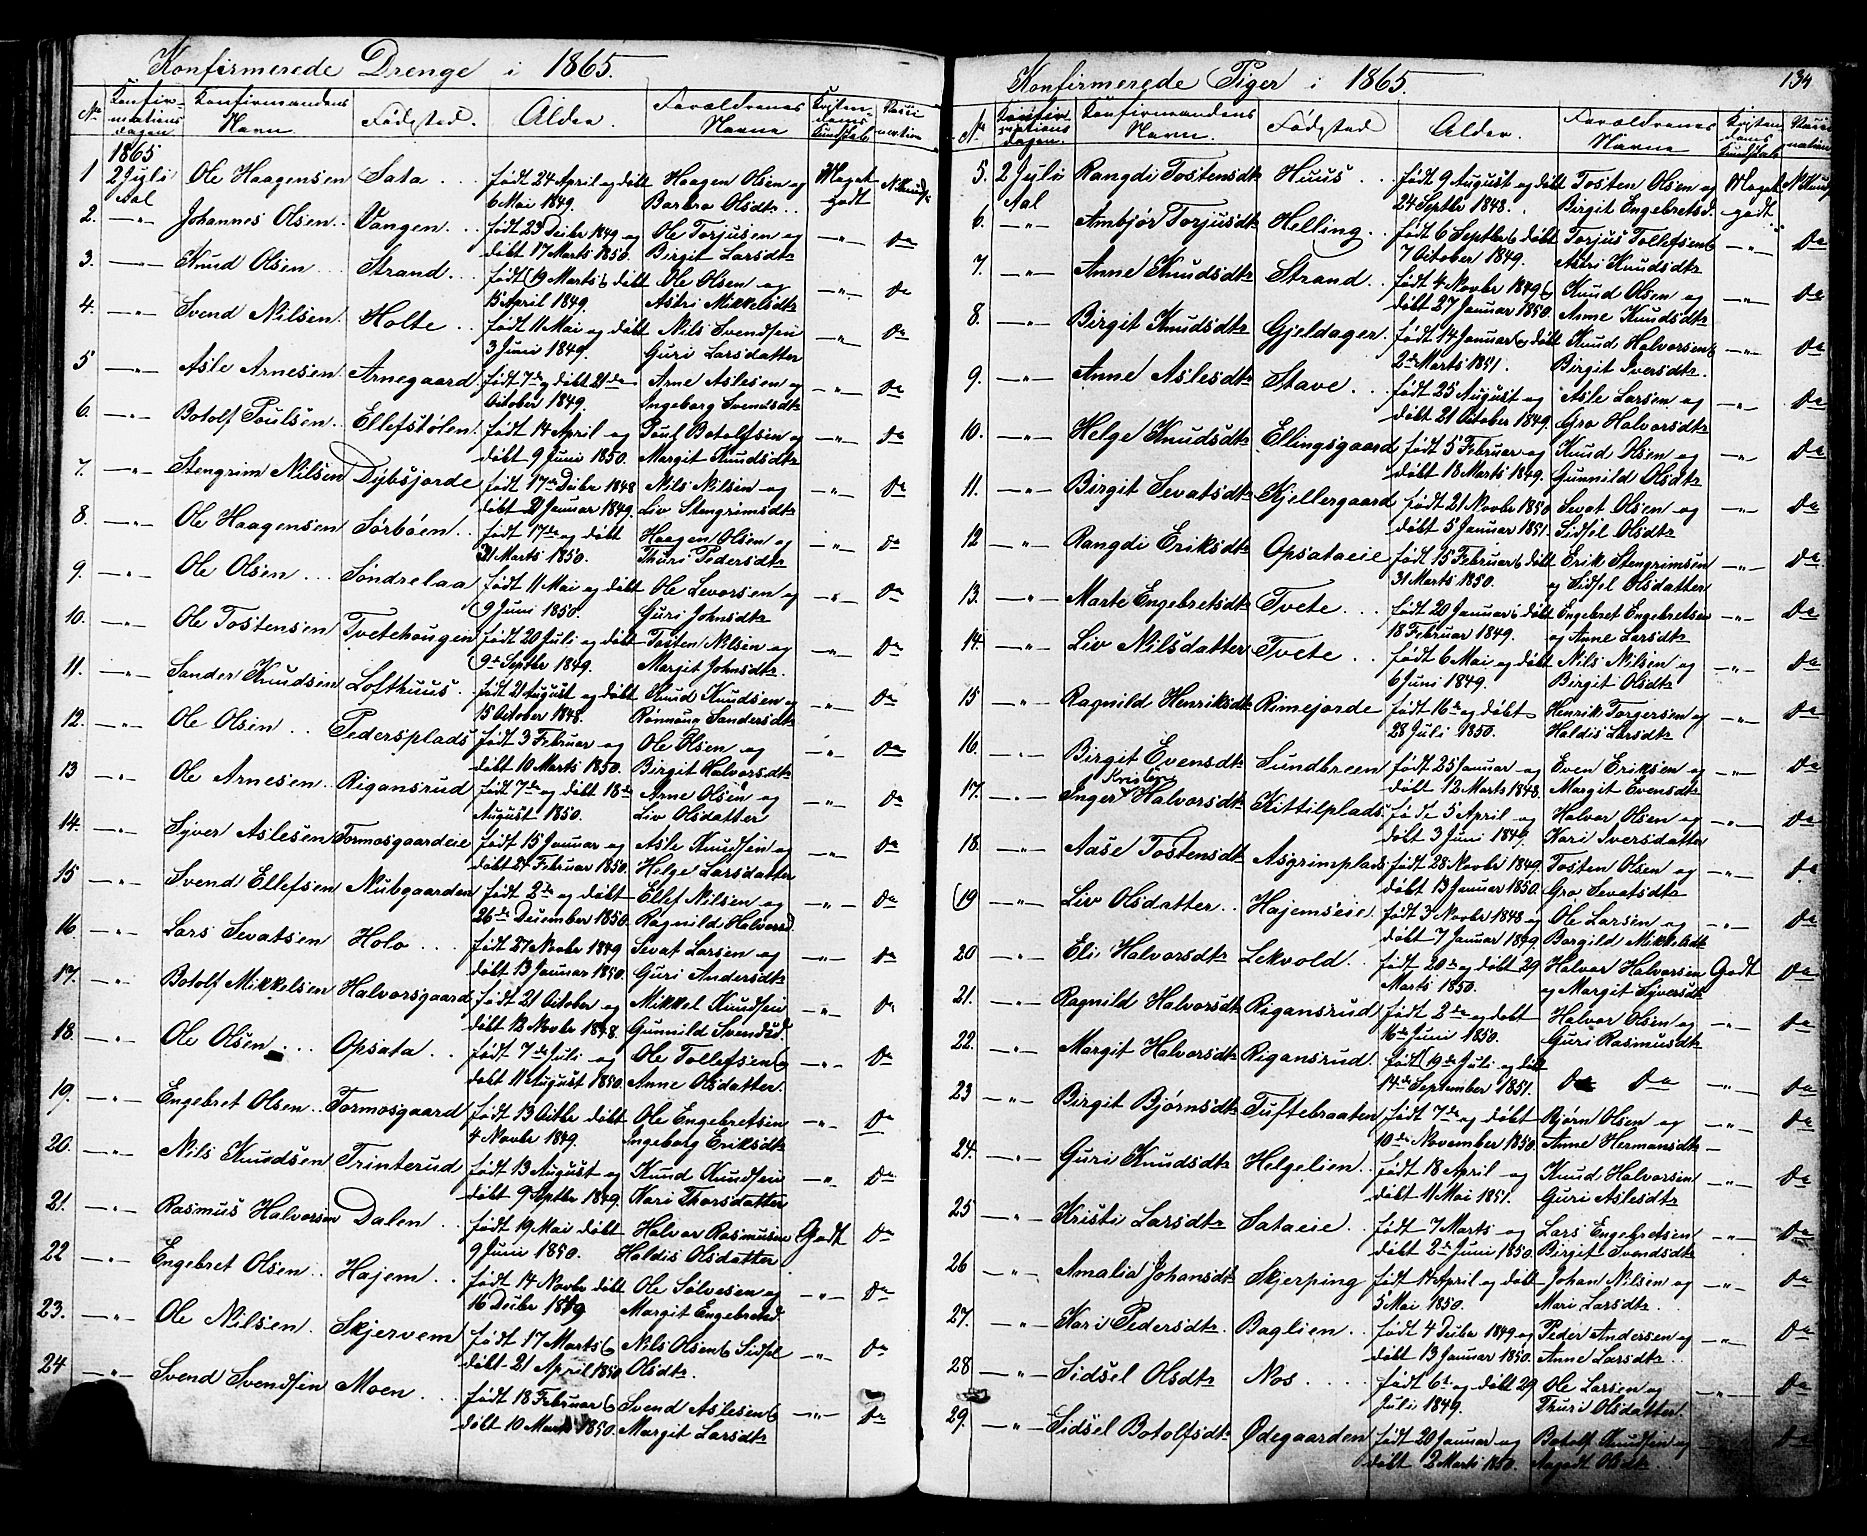 Konfirmerede Drenge i 1865.
No Konfirmationsdagen Konfirmandens Navn Fødested Alder Forældrenes Navne Kristendoms Kundskab Vaccination
1865
1 2 Juli Aal Ole Haagensen Sata født 24 April og døbt 6 Mai 1849. Haagen Olsen og Barbro Olsdtr. Meget godt
2. —"— Johannes Olsen Vangen født 23 Decbr 1849 og døbt 17 Marts 1850. Ole Torjusen og Birgit Larsdtr —"— Do
3. —"— Knud Olsen Strand født 19 Marts & døbt 15 April 1849. Ole Olsen og Astri Mikkelsdtr —"— Do
4. —"— Svend Nilsen Holte født 11 Mai og døbt 3 Juni 1849. Nils Svendsen Guri Larsdatter —"— Do
5 —"— Asle Arnesen Arnegaard født 7de og døbt 21de October 1849. Arne Aslesen og Ingeborg Svendsdtr —"— Do
6. —"— Botolf Poulsen Ellefstølen født 14 April og døbt 9 Juni 1850. Poul Botolfsen og Margit Knudsdtr —"— Do
7. —"— Stengrim Nilsen Dybsjorde født 17de Decbr 1848 døbt 21 Januar 1849. Nils Nilsen og Liv Stengrimsdtr —"— Do
8. —"— Ole Haagensen Sørbøen født 17de og døbt 31 Marts 1850. Haagen Olsen og Thuri Pedersdtr —"— Do
9. —"— Ole Olsen Søndrelaa født 11 Mai og døbt 9 Juni 1850. Ole Levorsen og Guri Johnsdtr —"— Do
10. —"— Ole Tostensen Tvetehougen født 20 Juli og døbt 9de Septbr 1849. Tosten Nilsen og Margit Johnsdtr. —"— Do
11. —"— Sander Knudsen Lofthuus født 21 August og døbt 15 October 1848. Knud Knudsen og Rønnaug Sandersdtr —"— Do
12. —"— Ole Olsen Pedersplads født 3 Februar og døbt 10 Marts 1850. Ole Olsen og Birgit Halvorsdtr —"— Do
13 —"— Ole Arnesen Rigansrud født 7de og døbt 18de August 1850. Arne Olsen og Liv Olsdatter —"— Do
14. —"— Syver Aslesen Tormosgaardeie født 15 Januar og døbt 24 Februar 1850. Asle Knudsen og Helge Larsdatter —"— Do
15 —"— Svend Ellefsen Nubgaarden født 2de og døbt 26de December 1850. Ellef Nilsen og Ragnild Halvorsd. —"— Do
16. —"— Lars Sevatsen Holo født 27 Novbr 1849 døbt 13 Januar 1850. Sevat Larsen og Guri Andersdtr —"— Do
17. —"— Botolf Mikkelsen Halvorsgaard født 21 October og døbt 12 Novbr 1848. Mikkel Knudsen Gunnild Svendsd. —"— Do
18. —"— Ole Olsen Opsata født 7de Juli og døbt 11 August 1850. Ole Tollefsen & Anne Olsdatter. —"— Do
19. —"— Engebret Olsen Tormosgaard født 13 Octbr døbt 4 Novbr 1849. Ole Engebretsen Ingeborg Eriksdtr —"— Do
20. —"— Nils Knudsen Trinterud født 13 August og døbt 9 Septbr 1849. Knud Knudsen Kari Thorsdatter —"— Do
21. —"— Rasmus Halvorsen Dalen født 19 Mai døbt 9 Juni 1850. Halvor Rasmusen Haldis Olsdatter Godt Do
22 —"— Engebret Olsen Hajem født 14 Novbr døbt 16 Decbr 1849 Ole Sølvesen og Margit Engebretsd —"— Do
23. —"— Ole Nilsen Skjervem født 17 Marts & døbt 21 April 1850 Nils Olsen & Sidsel Olsdtr. —"— Do
24 —"— Svend Svendsen Moen født 18 Februar & døbt 10 Marts 1850. Svend Aslesen & Margit Larsdtr —"— Do
Konfirmerede Piger i 1865. 134
No Konfirmationsdagen. Konfirmandens Navn. Fødested Alder. Forældrenes Navne Kristendoms Kundskab Vaccination
5. 2 Juli Aal Rangdi Tostensdtr Huus født 9 August og døbt 24 Septbr 1848. Tosten Olsen og Birgit Engebretsd. Meget godt
6. —"— Ambjør Torjusdtr Helling født 6 Septbr & døbt 7 October 1849. Torjus Tollefsen & Astri Knudsdtr —"— Do
7. —"— Anne Knudsdtr Strand født 4 Novbr 1849 & døbt 27 Januar 1850. Knud Olsen og Anne Knudsdtr —"— Do
8. —"— Birgit Knudsdtr Gjeldager født 14 Januar & døbt 2de Marts 1851. Knud Halvorsen & Birgit Iversdtr. —"— Do
9. —"— Anne Aslesdtr Stave født 25 August og døbt 21 October 1849. Asle Larsen og Gro Halvorsdtr —"— Do
10. —"— Helge Knudsdtr Ellingsgaard født 5 Februar og døbt 18 Marts 1849. Knud Olsen og Gunnild Olsdtr —"— Do
11. —"— Birgit Sevatsdtr Kjellergaard født 21 Novbr 1850 døbt 5 Januar 1851. Sevat Olsen og Sidsel Olsdtr —"— Do
12 —"— Rangdi Eriksdtr Opsataeie født 15 Februar & døbt 31 Marts 1850. Erik Stengrimsen og Sidsel Olsdatter —"— Do
13. —"— Marte Engebretsdtr Tvete født 20 Januar & døbt 18 Februar 1849. Engebret Engebretsen og Anne Larsdtr —"— Do
14. —"— Liv Nilsdatter Tvete født 6 Mai og døbt 6 Juni 1849. Nils Nilsen og Birgit Olsdtr —"— Do
15 —"— Ragnild Henriksdtr Rimejorde født 16de og døbt 28 Juli 1850. Henrik Torgersen og Haldis Larsdtr —"— Do
16. —"— Birgit Evensdtr Sundbreen født 25 Januar og døbt 12 Marts 1848. Even Eriksen og Margit Evensdtr —"— Do
17. —"— Inger Kristine Halvorsdtr Kittilplads født 5 April og døbt 3 Juni 1849. Halvor Olsen og Kari Iversdatter —"— Do
18. —"— Aase Tostensdt Asgrimplads født 28 Novbr 1849. døbt 13 Januar 1850. Tosten Olsen og Gro Sevatsdtr —"— Do
19 —"— Liv Olsdatter Hajemseie født 3 Novbr 1848 og døbt 7 Januar 1849 Ole Larsen og Borgild Mikkelsdtr —"— Do
20 —"— Eli Halvorsdtr Lekvold født 20de og døbt 29 Marts 1850. Halvor Halvorsen og Margit Syversdtr Godt Do
21. —"— Ragnild Halvorsdtr Rigansrud født 2de og døbt 16de Juni 1850. Halvor Olsen og Guri Rasmusdtr —"— Do
22. —"— Margit Halvorsdtr Rigansrud født 19de Juli og døbt 14de September 1851. Do Do —"— Do
23 —"— Birgit Bjørnsdtr Tuftebraaten født 7de og døbt 10de November 1850. Bjørn Olsen og Anne Hermansdtr —"— Do
24. —"— Guri Knudsdtr Helgelien født 18 April og døbt 11 Mai 1851. Knud Halvorsen Guri Aslesdtr —"— Do
25 —"— Kristi Larsdtr Sataeie født 7 Marts og døbt 2de Juni 1850. Lars Engebretsen Birgit Svendsdtr —"— Do
26 —"— Amalia Johansdtr Skjerping født 14 April og døbt 5 Mai 1850. Johan Nilsen og Mari Larsdtr —"— Do
27. —"— Kari Pedersdtr. Baglien født 4 Decbr 1849 og døbt 13 Januar 1850. Peder Andersen og Anne Larsdtr —"— Do
28 —"— Sidsel Olsdtr Nos født 6te og døbt 29 Juli 1849. Ole Larsen og Thuri Olsdatter. —"— Do
29. —"— Sidsel Botolfsdtr Ødegaarden født 20 Januar og døbt 2 Marts 1850. Botolf Knudsen og Olsdtr Do